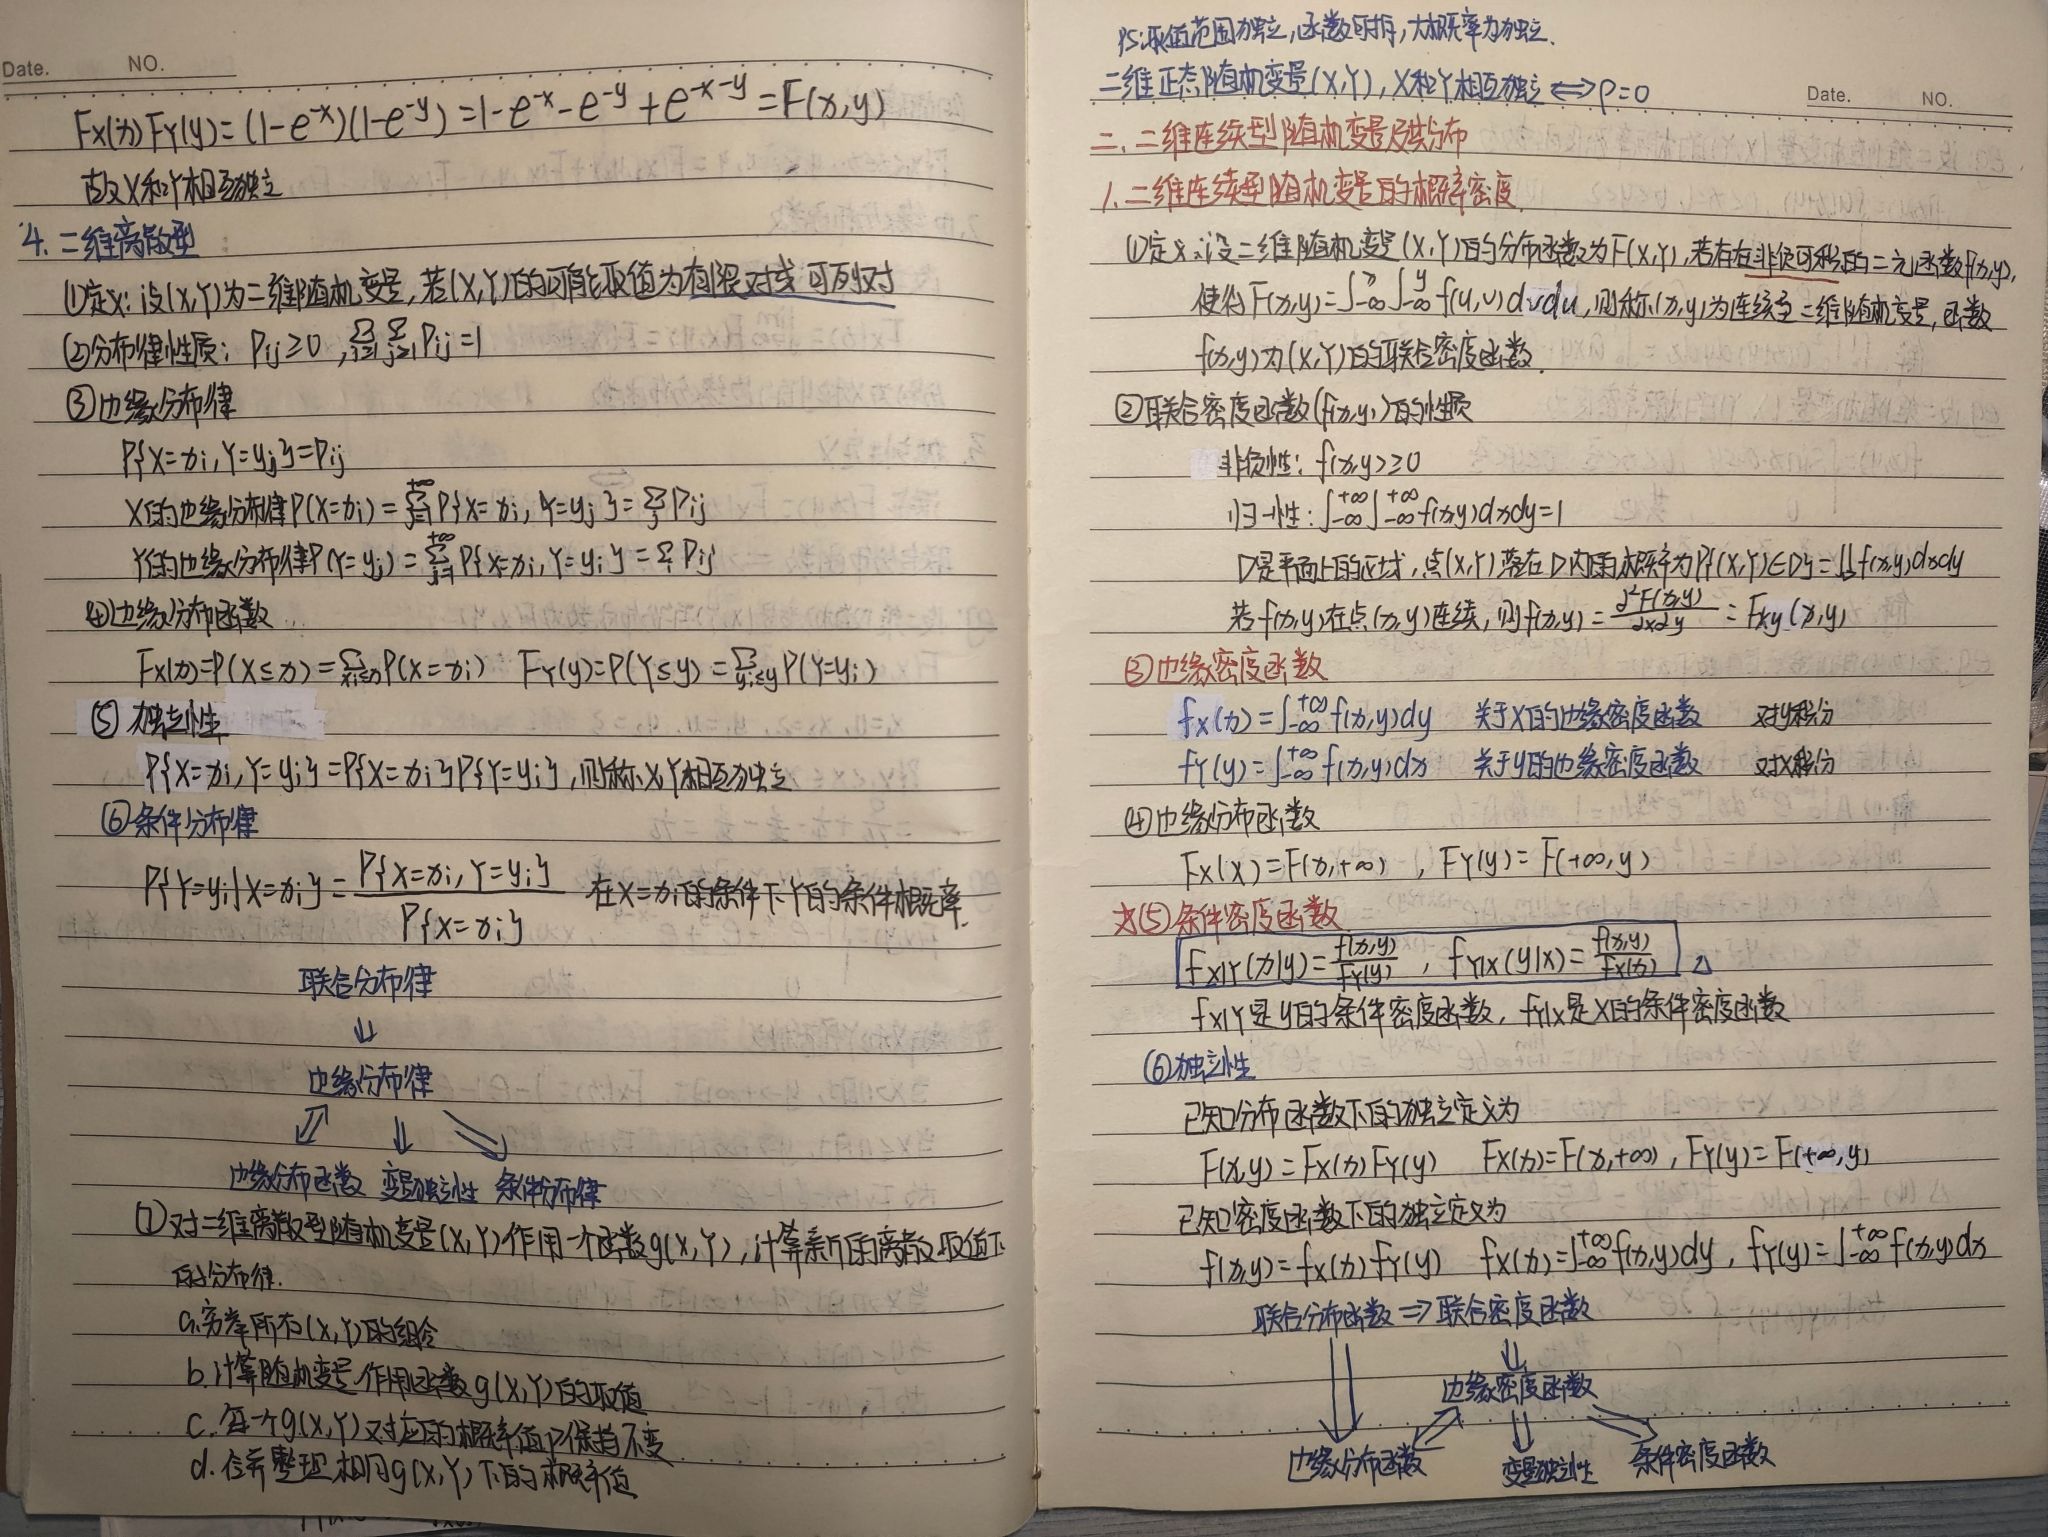 Date. NO.
Fx(x)FY(y)=(1-e^{-x})(1-e^{-y})=1-e^{-x}-e^{-y}+e^{-x-y}=F(x,y)
故X和Y相互独立
4. 二维离散型
①定义:设(X,Y)为二维随机变量,若(X,Y)的可能取值为有限对或可列对
②分布律性质: Pij≥0, ∑_{i=1}∑_{j=1}Pij=1
③边缘分布律
P{X=xi,Y=yj}=Pij
X的边缘分布律P(X=xi)=∑_{j=1}^{+∞}P{X=xi,Y=yj}=∑_j Pij
Y的边缘分布律P(Y=yj)=∑^{+∞}P{X=xi,Y=yi}=∑_i Pij
④边缘分布函数
Fx(x)=P(X≤x)=∑_{xi≤x}P(X=xi) FY(y)=P(Y≤y)=∑_{yi≤y}P(Y=yi)
⑤ 独立性
P{X=xi,Y=yi}=P{X=xi}P{Y=yi},则称X,Y相互独立
⑥条件分布律
P{Y=yi|X=xi}=P{X=xi,Y=yi}/P{X=xi} 在X=xi的条件下Y的条件概率.
联合分布律
↓
边缘分布律
边缘分布函数 变量独立性 条件分布律
⑦对二维离散型随机变量(X,Y)作用一个函数g(X,Y),计算新的离散取值下
的分布律.
a.穷举所有(X,Y)的组合
b.计算随机变量作用函数g(X,Y)的取值
c.每一个g(X,Y)对应的概率值P保持不变
d.合并整理相同g(X,Y)下的概率值
PS:取值范围独立,函数可拆,大概率为独立.
二维正态随机变量(X,Y),X和Y相互独立⟺ρ=0
Date. NO.
二、二维连续型随机变量及其分布
1.二维连续型随机变量的概率密度
①定义:设二维随机变量(X,Y)的分布函数为F(X,Y),若存在非负可积的二元函数f(x,y),
使得F(x,y)=∫_{-∞}^{x}∫_{-∞}^{y}f(u,v)dvdu,则称(x,y)为连续型二维随机变量,函数
f(x,y)为(X,Y)的联合密度函数.
②联合密度函数(f(x,y))的性质
非负性: f(x,y)≥0
归一性:∫_{-∞}^{+∞}∫_{-∞}^{+∞}f(x,y)dxdy=1
D是平面上的区域,点(X,Y)落在D内的概率为P{(X,Y)∈D}=∬_D f(x,y)dxdy
若f(x,y)在点(x,y)连续,则f(x,y)=∂²F(x,y)/∂x∂y=Fxy(x,y)
③边缘密度函数
fx(x)=∫_{-∞}^{+∞}f(x,y)dy 关于X的边缘密度函数 对y积分
fY(y)=∫_{-∞}^{+∞}f(x,y)dx 关于y的边缘密度函数 对x积分
④边缘分布函数
Fx(x)=F(x,+∞), FY(y)=F(+∞,y)
☆(5)条件密度函数
fX|Y(x|y)=f(x,y)/fY(y), fY|X(y|x)=f(x,y)/fx(x) △
fX|Y是y的条件密度函数,fY|X是X的条件密度函数
⑥独立性
已知分布函数下的独立定义为
F(x,y)=Fx(x)FY(y) Fx(x)=F(x,+∞),FY(y)=F(+∞,y)
已知密度函数下的独立定义为
f(x,y)=fx(x)fY(y) fx(x)=∫_{-∞}^{+∞}f(x,y)dy, fY(y)=∫_{-∞}^{+∞}f(x,y)dx
联合分布函数⇒联合密度函数
边缘密度函数
边缘分布函数 变量独立性 条件密度函数